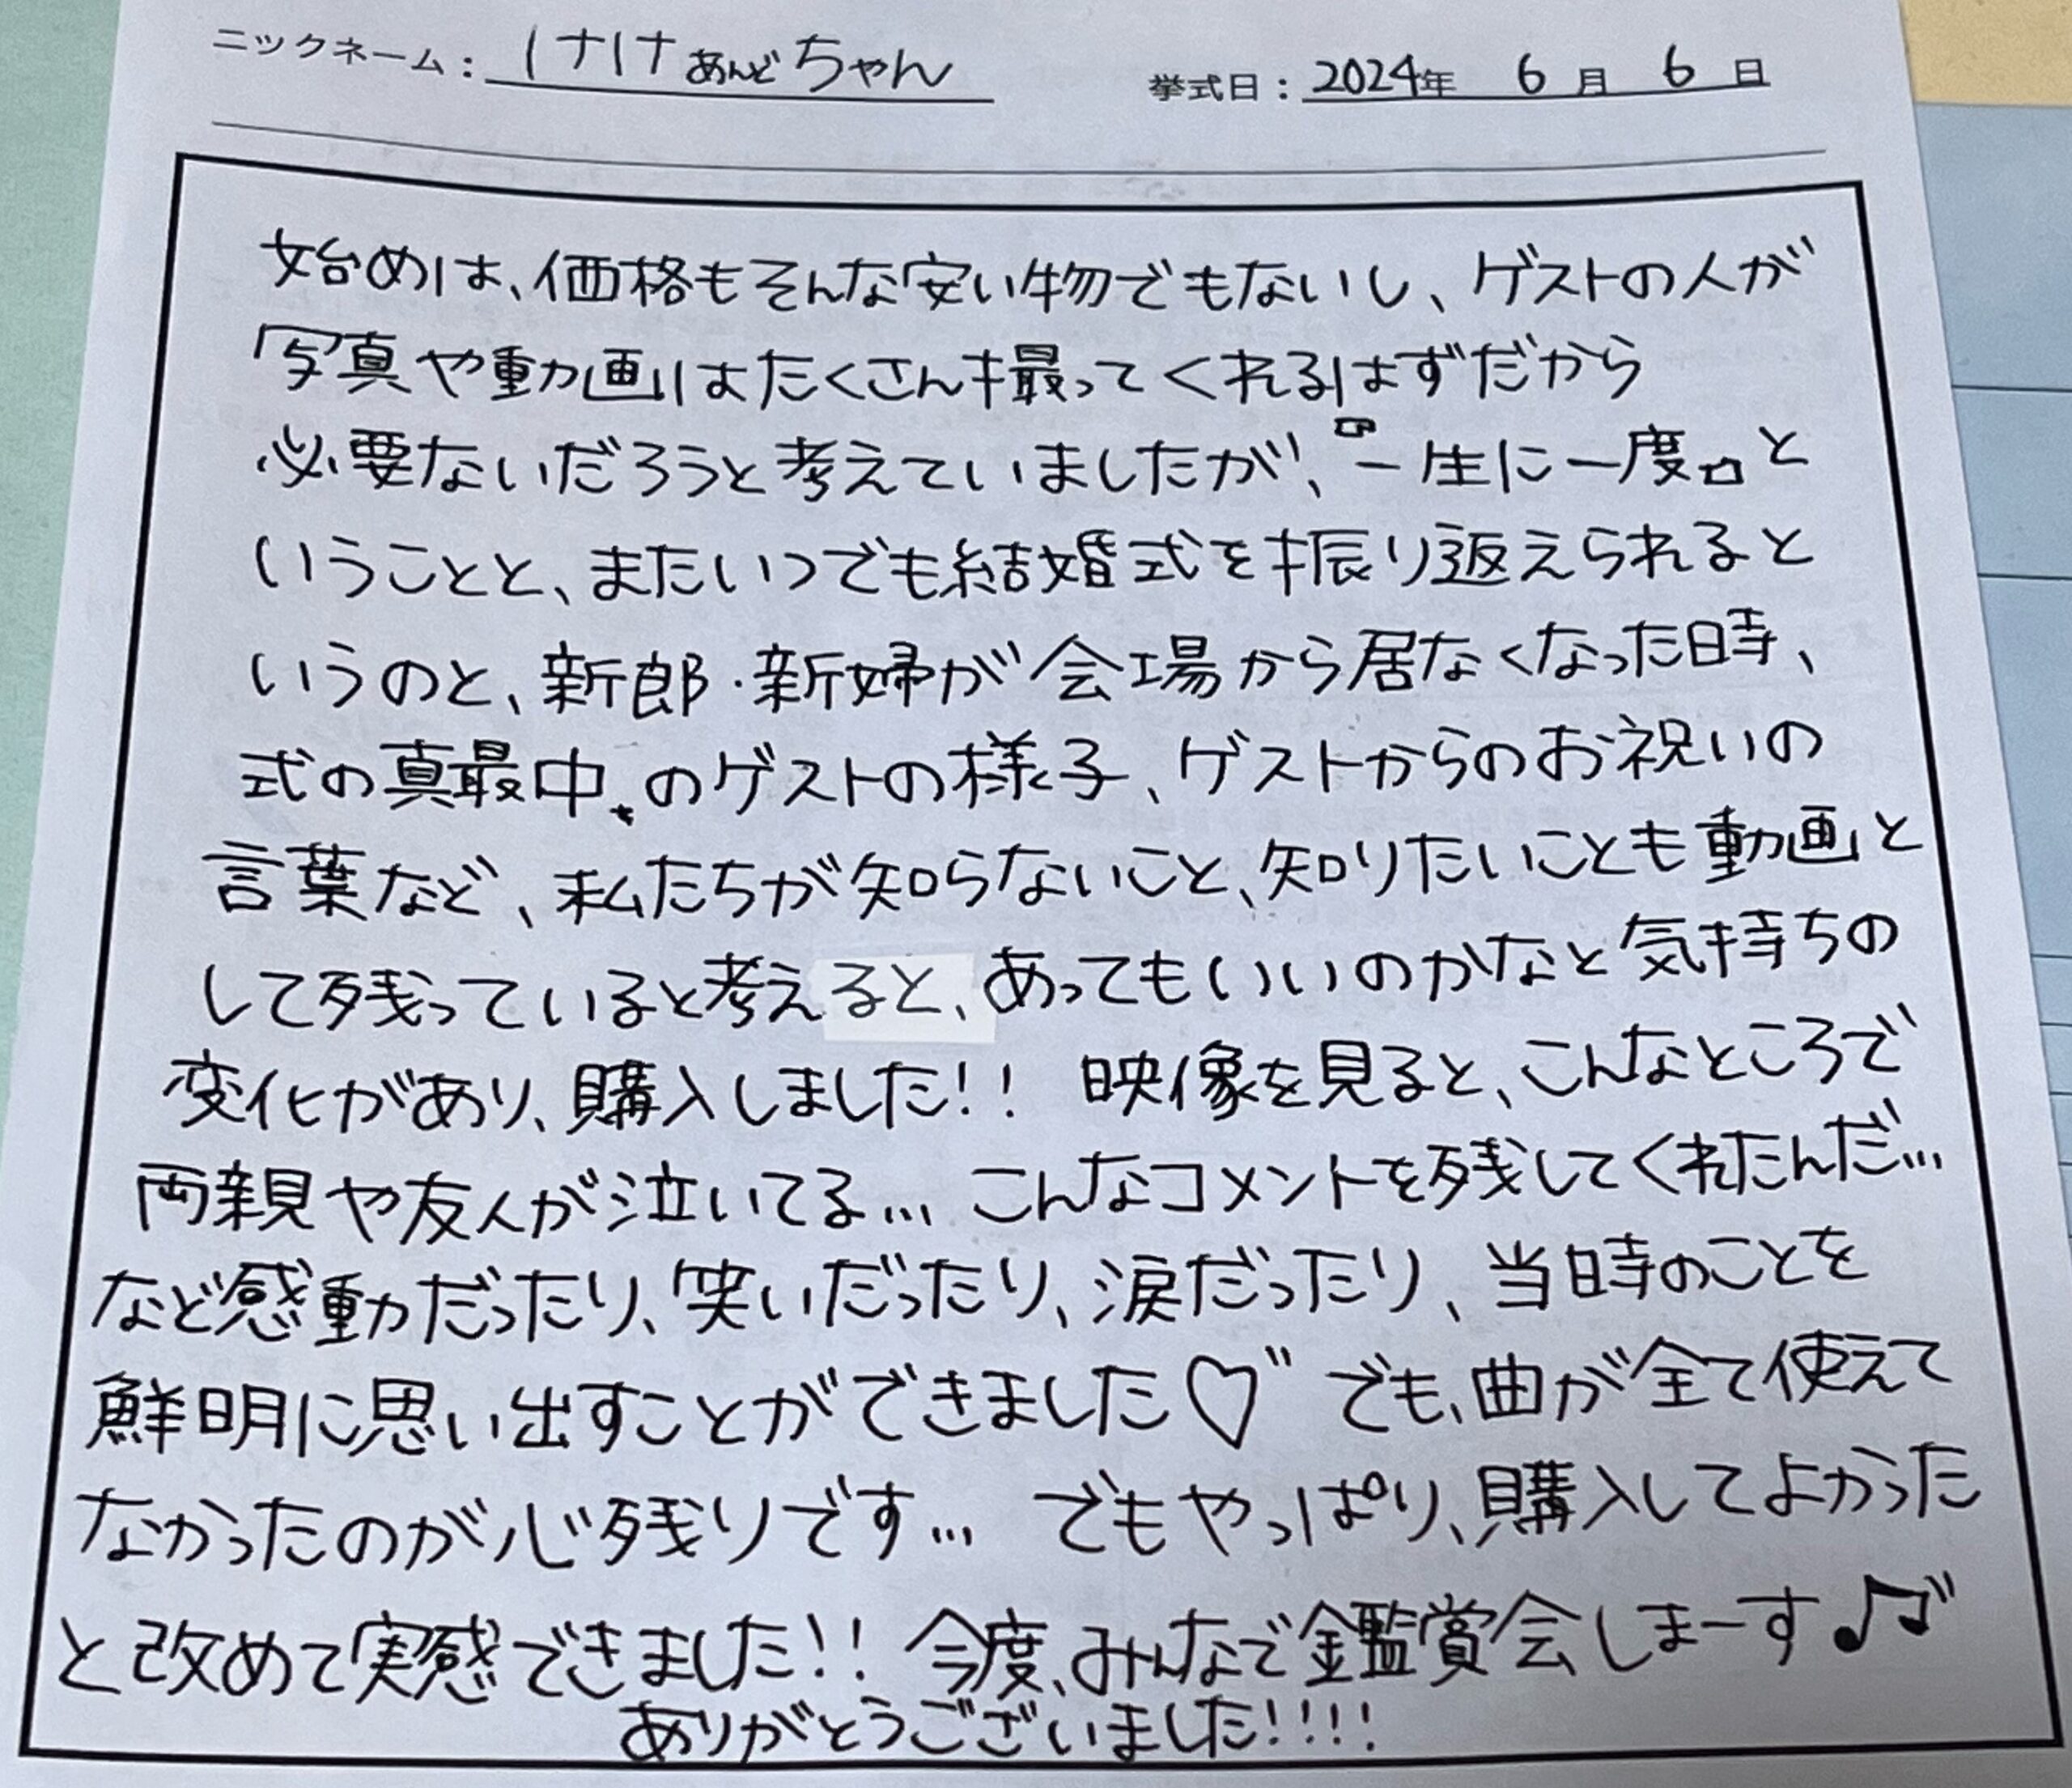 ニックネーム： けけあんどちゃん 挙式日： 2024年 6月 6日
始めは、価格もそんな安い物でもないし、ゲストの人が
写真や動画はたくさん撮ってくれるはずだから
必要ないだろうと考えていましたが、『一生に一度』と
いうことと、またいつでも結婚式を振り返えられると
いうのと、新郎・新婦が会場から居なくなった時、
式の真最中のゲストの様子、ゲストからのお祝いの
言葉など、私たちが知らないこと、知りたいことも動画と
して残っていると考えると、あってもいいのかなと気持ちの
変化があり、購入しました!! 映像を見ると、こんなところで
両親や友人が泣いてる… こんなコメントを残してくれたんだ…
など感動だったり、笑いだったり、涙だったり、当時のことを
鮮明に思い出すことができました♡” でも、曲が全て使えて
なかったのが心残りです… でもやっぱり、購入してよかった
と改めて実感できました!! 今度、みんなで鑑賞会しまーす♪♫”
ありがとうございました!!!!